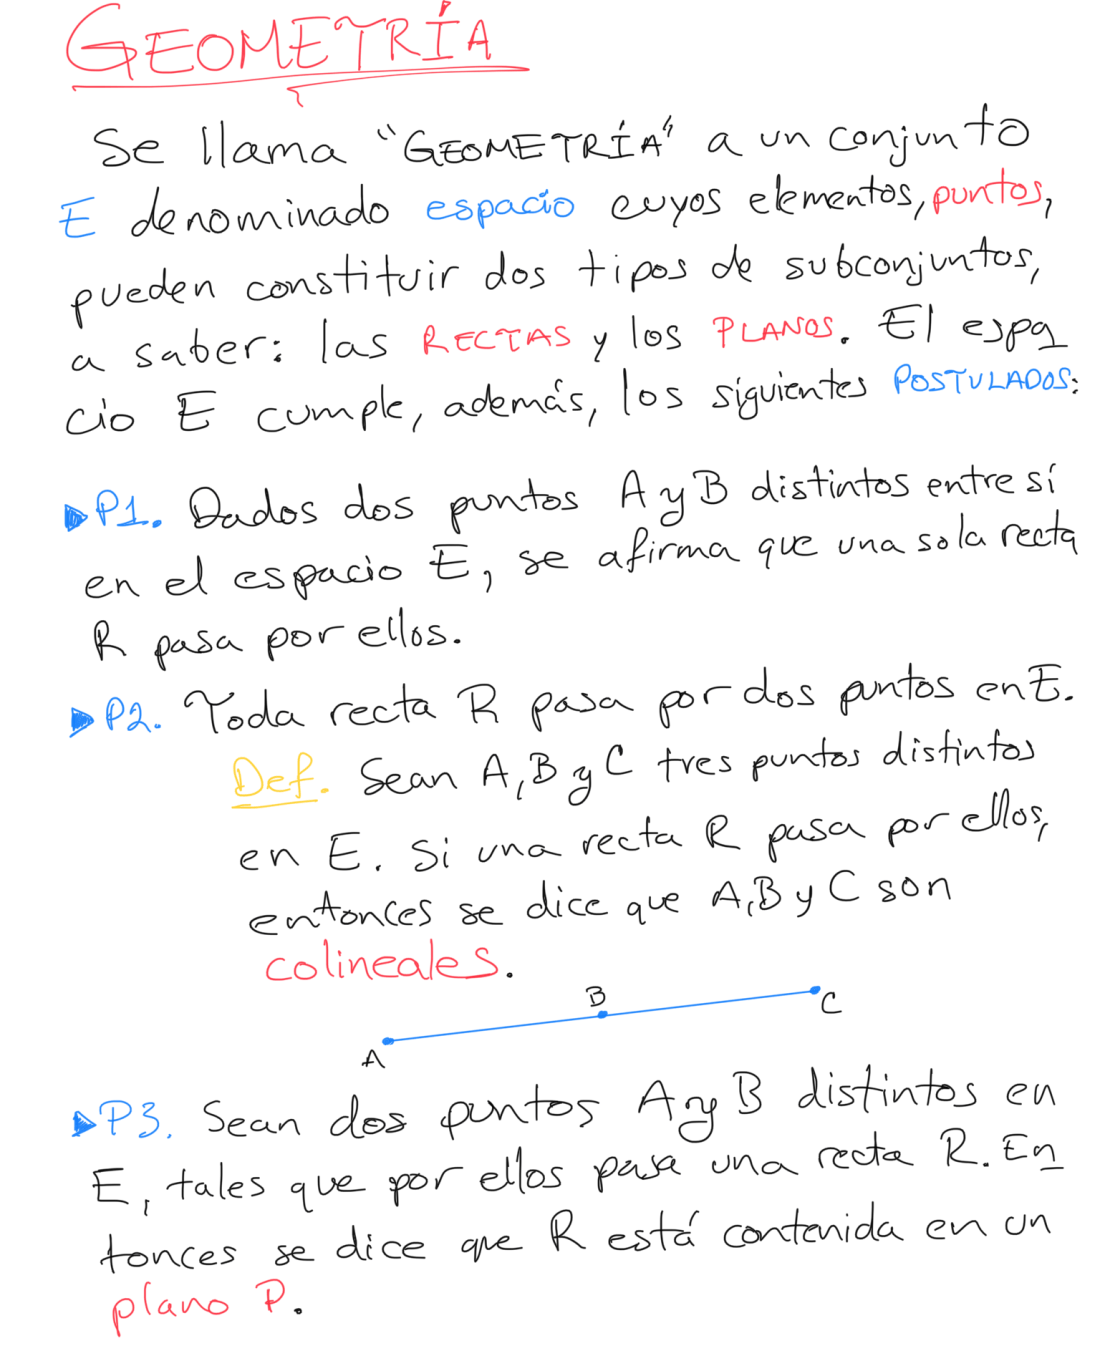 GEOMETRÍA
Se llama "GEOMETRÍA" a un conjunto
E denominado espacio cuyos elementos, puntos,
pueden constituir dos tipos de subconjuntos,
a saber: las RECTAS y los PLANOS. El espa
cio E cumple, además, los siguientes POSTULADOS:
P1. Dados dos puntos A y B distintos entre sí
en el espacio E, se afirma que una sola recta
R pasa por ellos.
P2. Toda recta R pasa por dos puntos en E.
Def. Sean A, B y C tres puntos distintos
en E. Si una recta R pasa por ellos,
entonces se dice que A, B y C son
colineales.
A B C
P3. Sean dos puntos A y B distintos en
E, tales que por ellos pasa una recta R. En
tonces se dice que R está contenida en un
plano P.